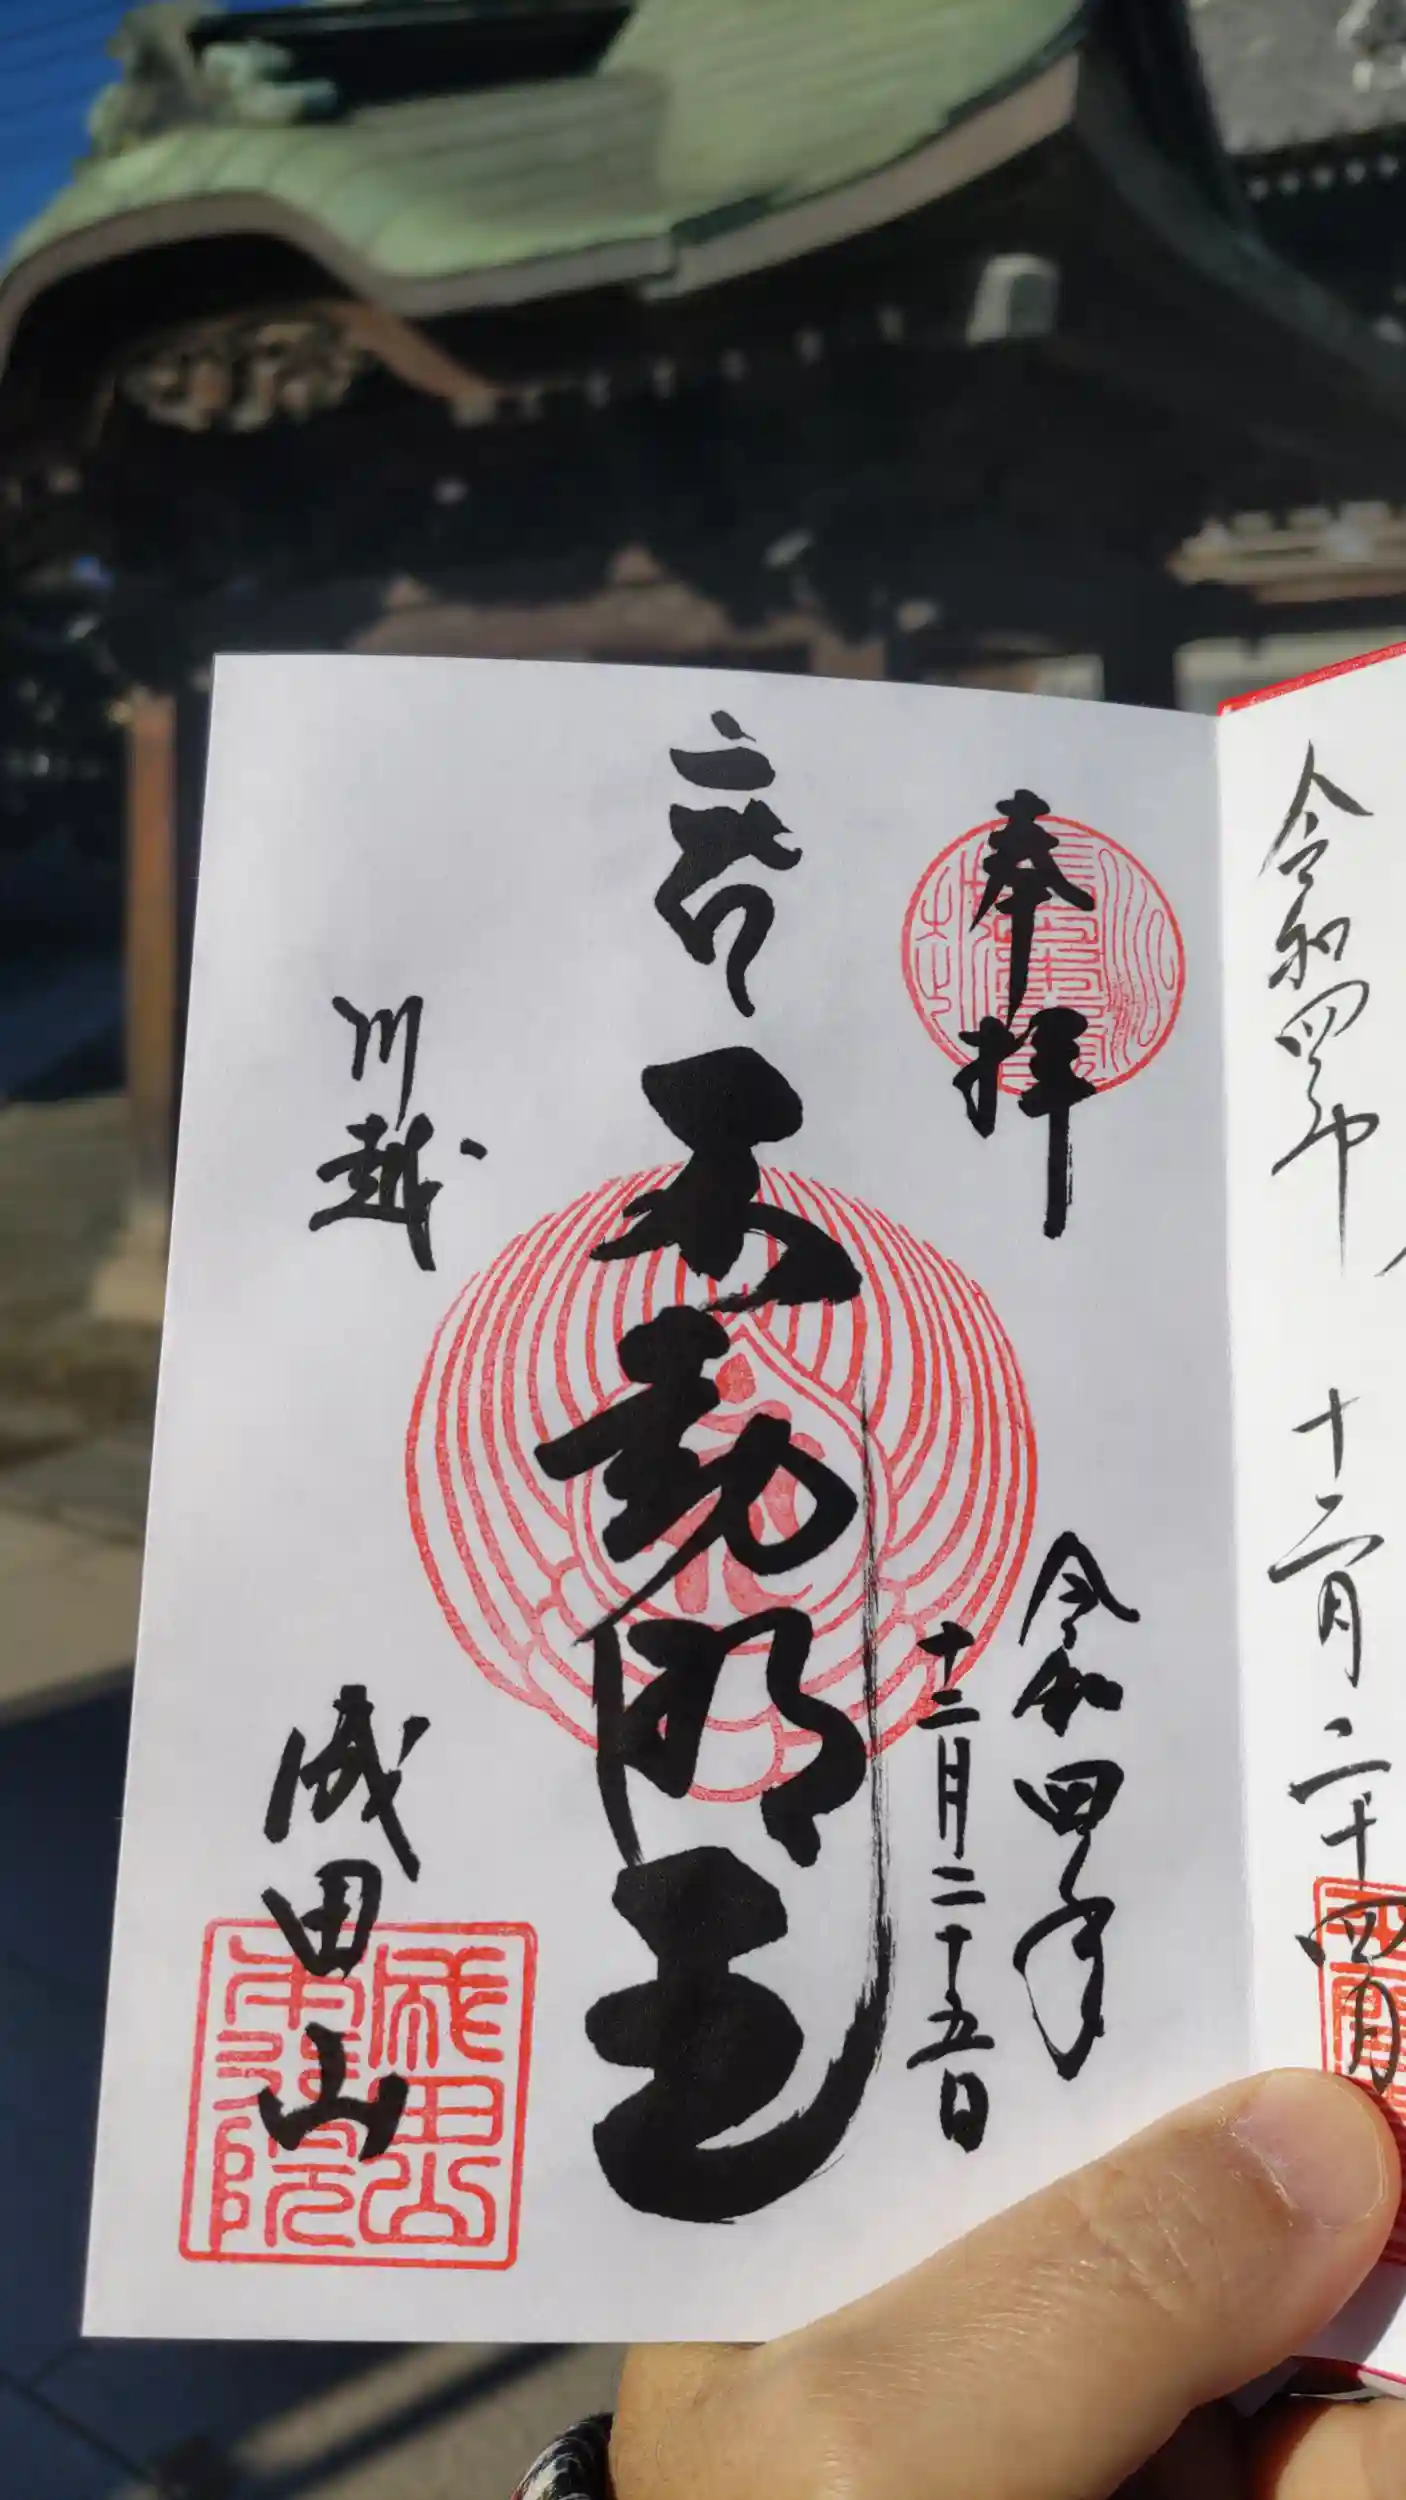 令和四年 十二月二十四日
奉拝
令和四年
十二月二十五日
不動明王
川越
成田山
成田山
本行院